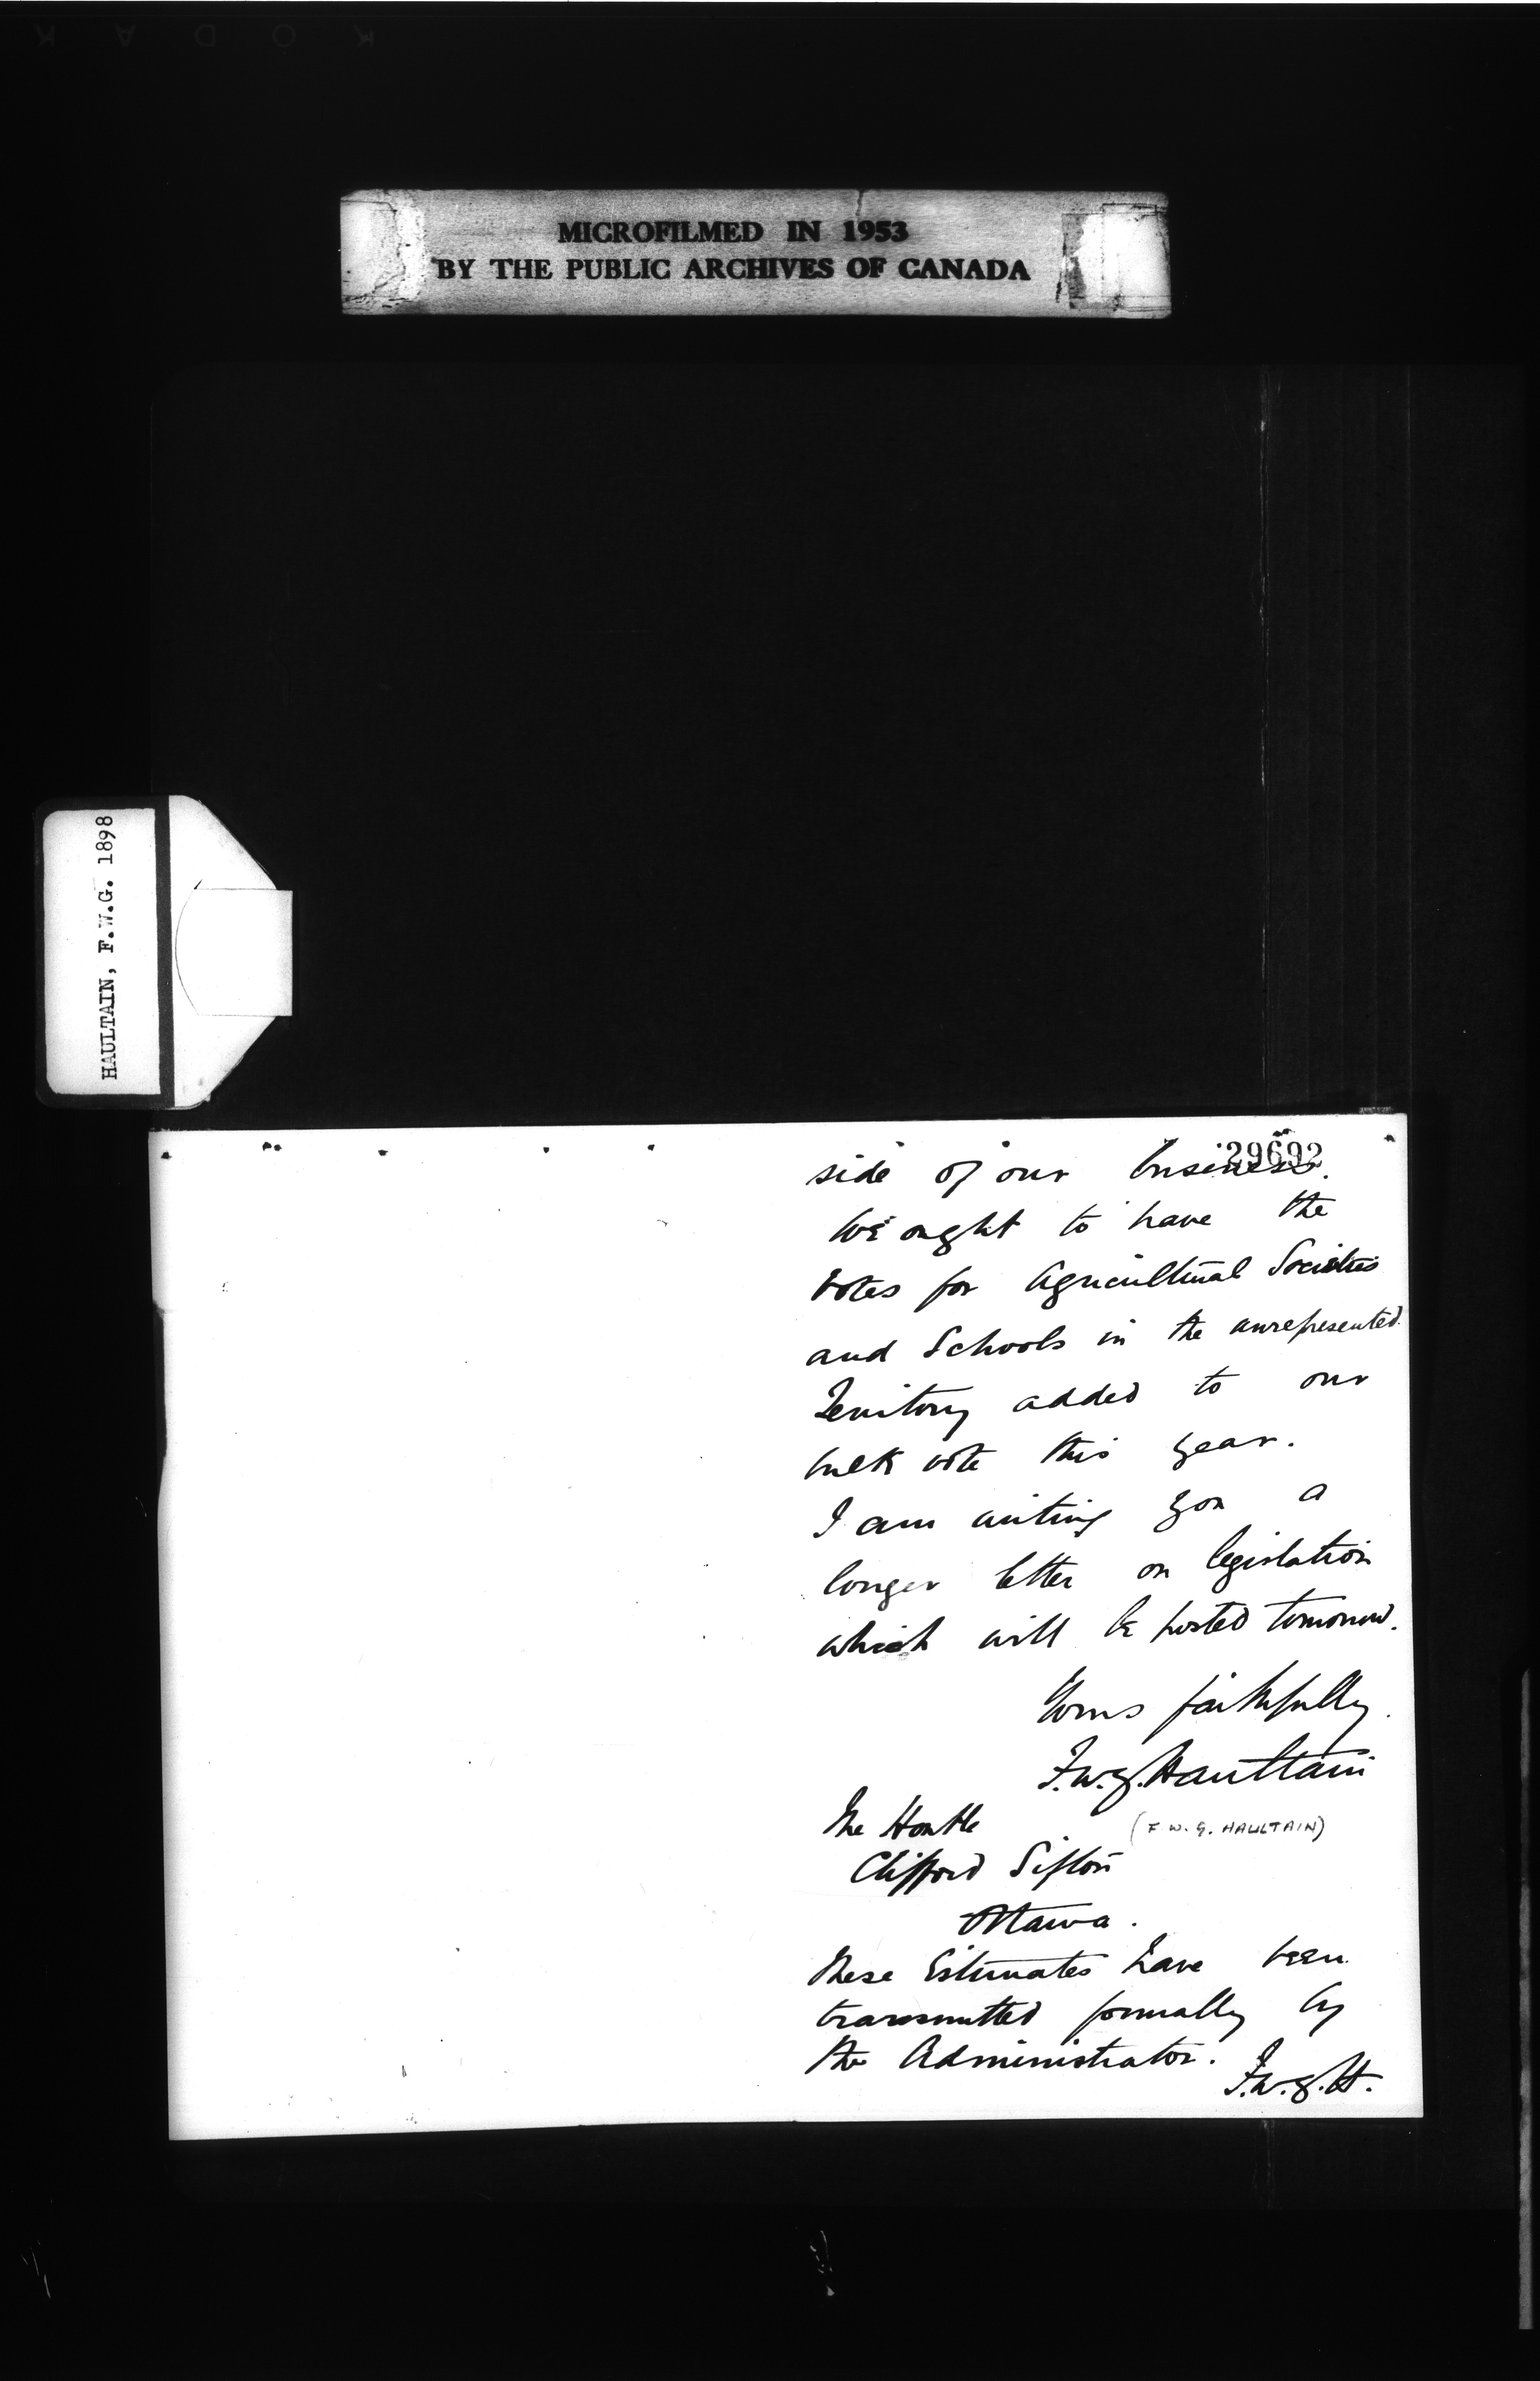 MICROFILMED IN 1953
BY THE PUBLIC ARCHIVES OF CANADA
HAULTAIN, F.W.G. 1898
29692
side of our business.
We ought to have the
votes for Agricultural Societies
and Schools in the unrepresented
Territory added to our
bulk vote this year.
I am writing you a
longer letter on legislation
which will be posted tomorrow.
Yours faithfully
F.W.G. Haultain
(F. W. G. HAULTAIN)
The Honble
Clifford Sifton
Ottawa.
These Estimates have been
transmitted formally by
the Administrator.
F.W.G.H.